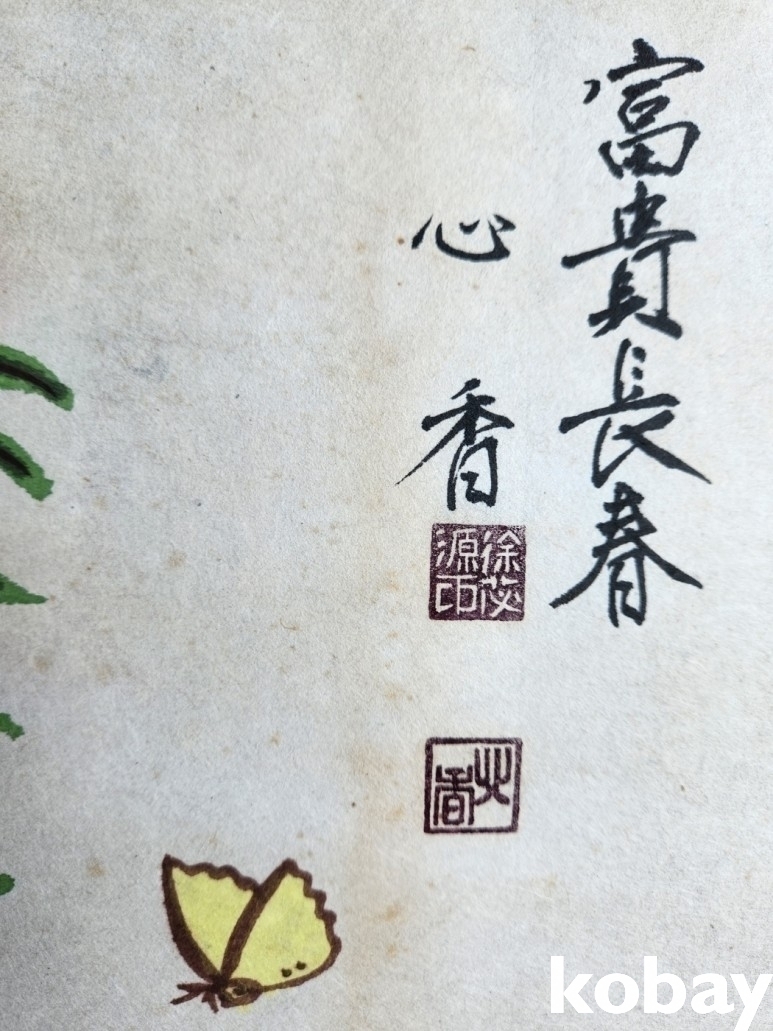 富貴長春
心香
徐苾源印
心香
kobay